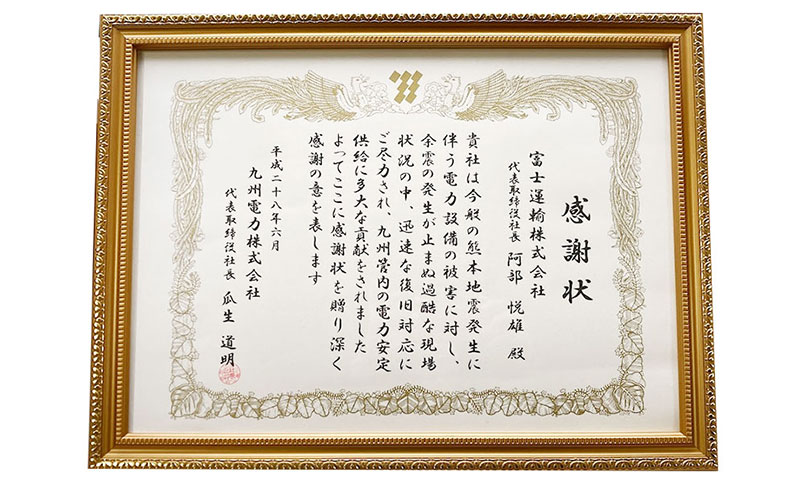 感謝状
富士運輸株式会社
代表取締役社長 阿部 悦雄 殿
貴社は今般の熊本地震発生に
伴う電力設備の被害に対し、
余震の発生が止まぬ過酷な現場
状況の中、迅速な復旧対応に
ご尽力され、九州管内の電力安定
供給に多大な貢献をされました
よってここに感謝状を贈り深く
感謝の意を表します
平成二十八年六月
九州電力株式会社
代表取締役社長 瓜生 道明